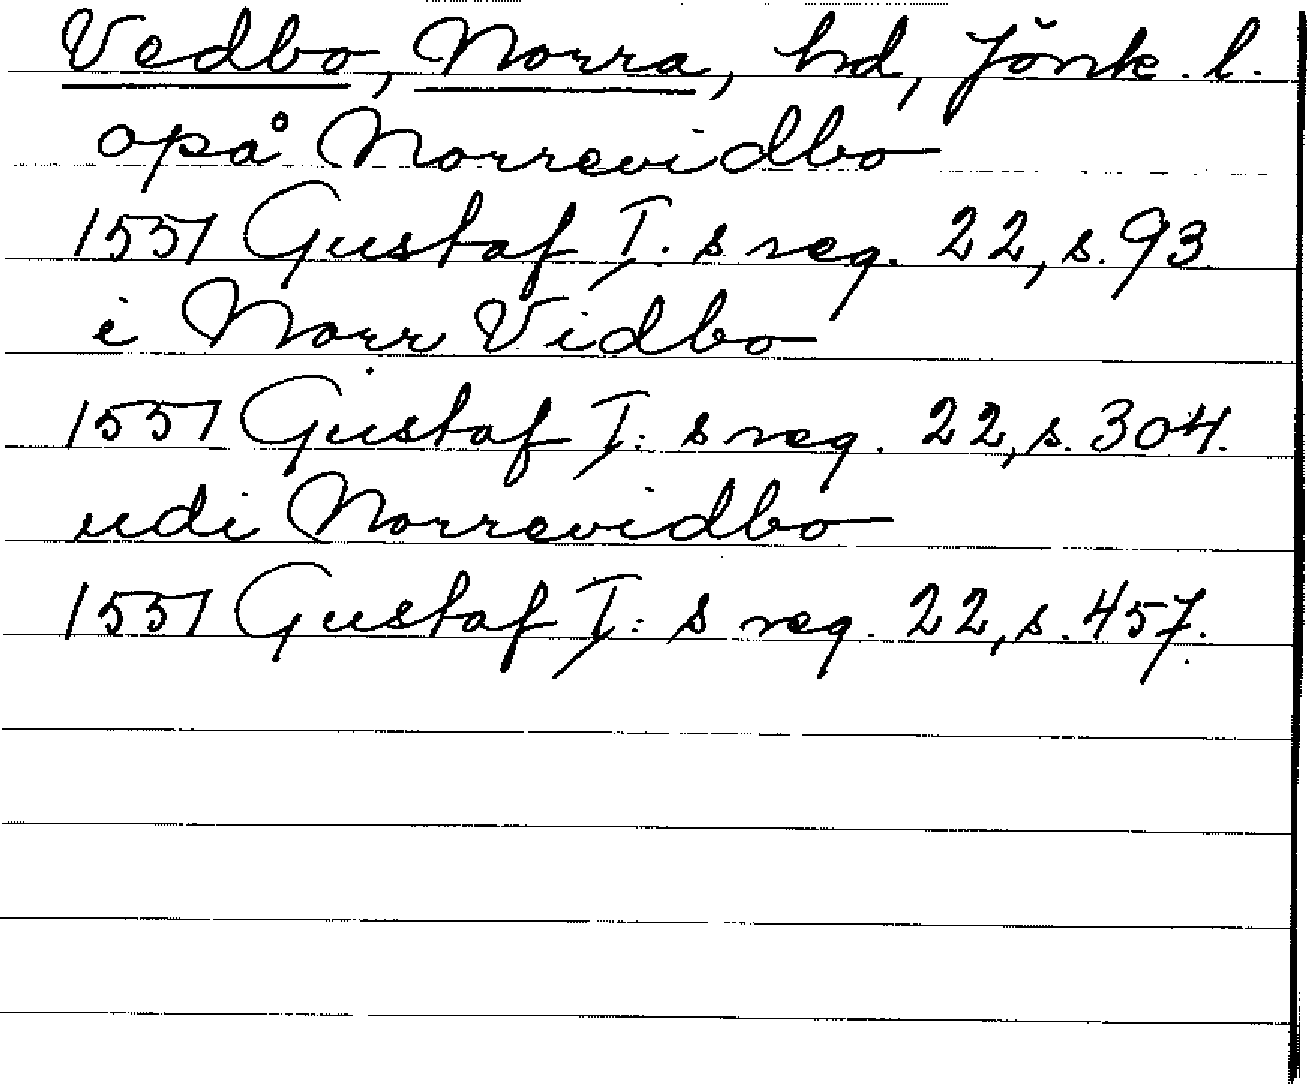 Vedbo, Norra, hd, Jönk. l.
opå Norrevidbo
1551 Gustaf I. s reg. 22, s. 93
i Norr Vidbo
1551 Gustaf I: s reg. 22, s. 304.
udi Norrevidbo
1551 Gustaf I: s reg. 22, s. 457.